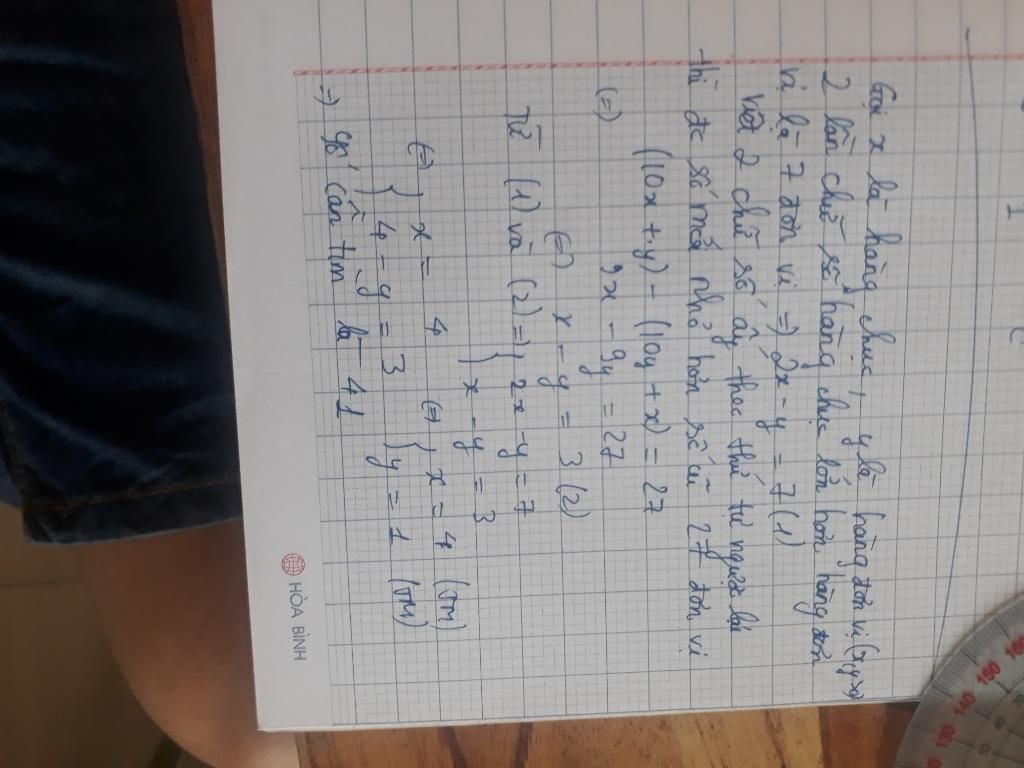 Gọi x là hàng chục, y là hàng đơn vị (x,y>0)
2 lần chữ số hàng chục lớn hơn hàng đơn
vị là 7 đơn vị => 2x - y = 7 (1)
viết 2 chữ số ấy theo thứ tự ngược lại
thì đc số mới nhỏ hơn số cũ 27 đơn vị
(10x + y) - (10y + x) = 27
(=) 9x - 9y = 27
(=) x - y = 3 (2)
Từ (1) và (2) => { 2x - y = 7
x - y = 3
(=) { x = 4 (=) { x = 4 (TM)
4 - y = 3 y = 1 (TM)
=) số cần tìm là 41
HÒA BÌNH
160
150
140
130